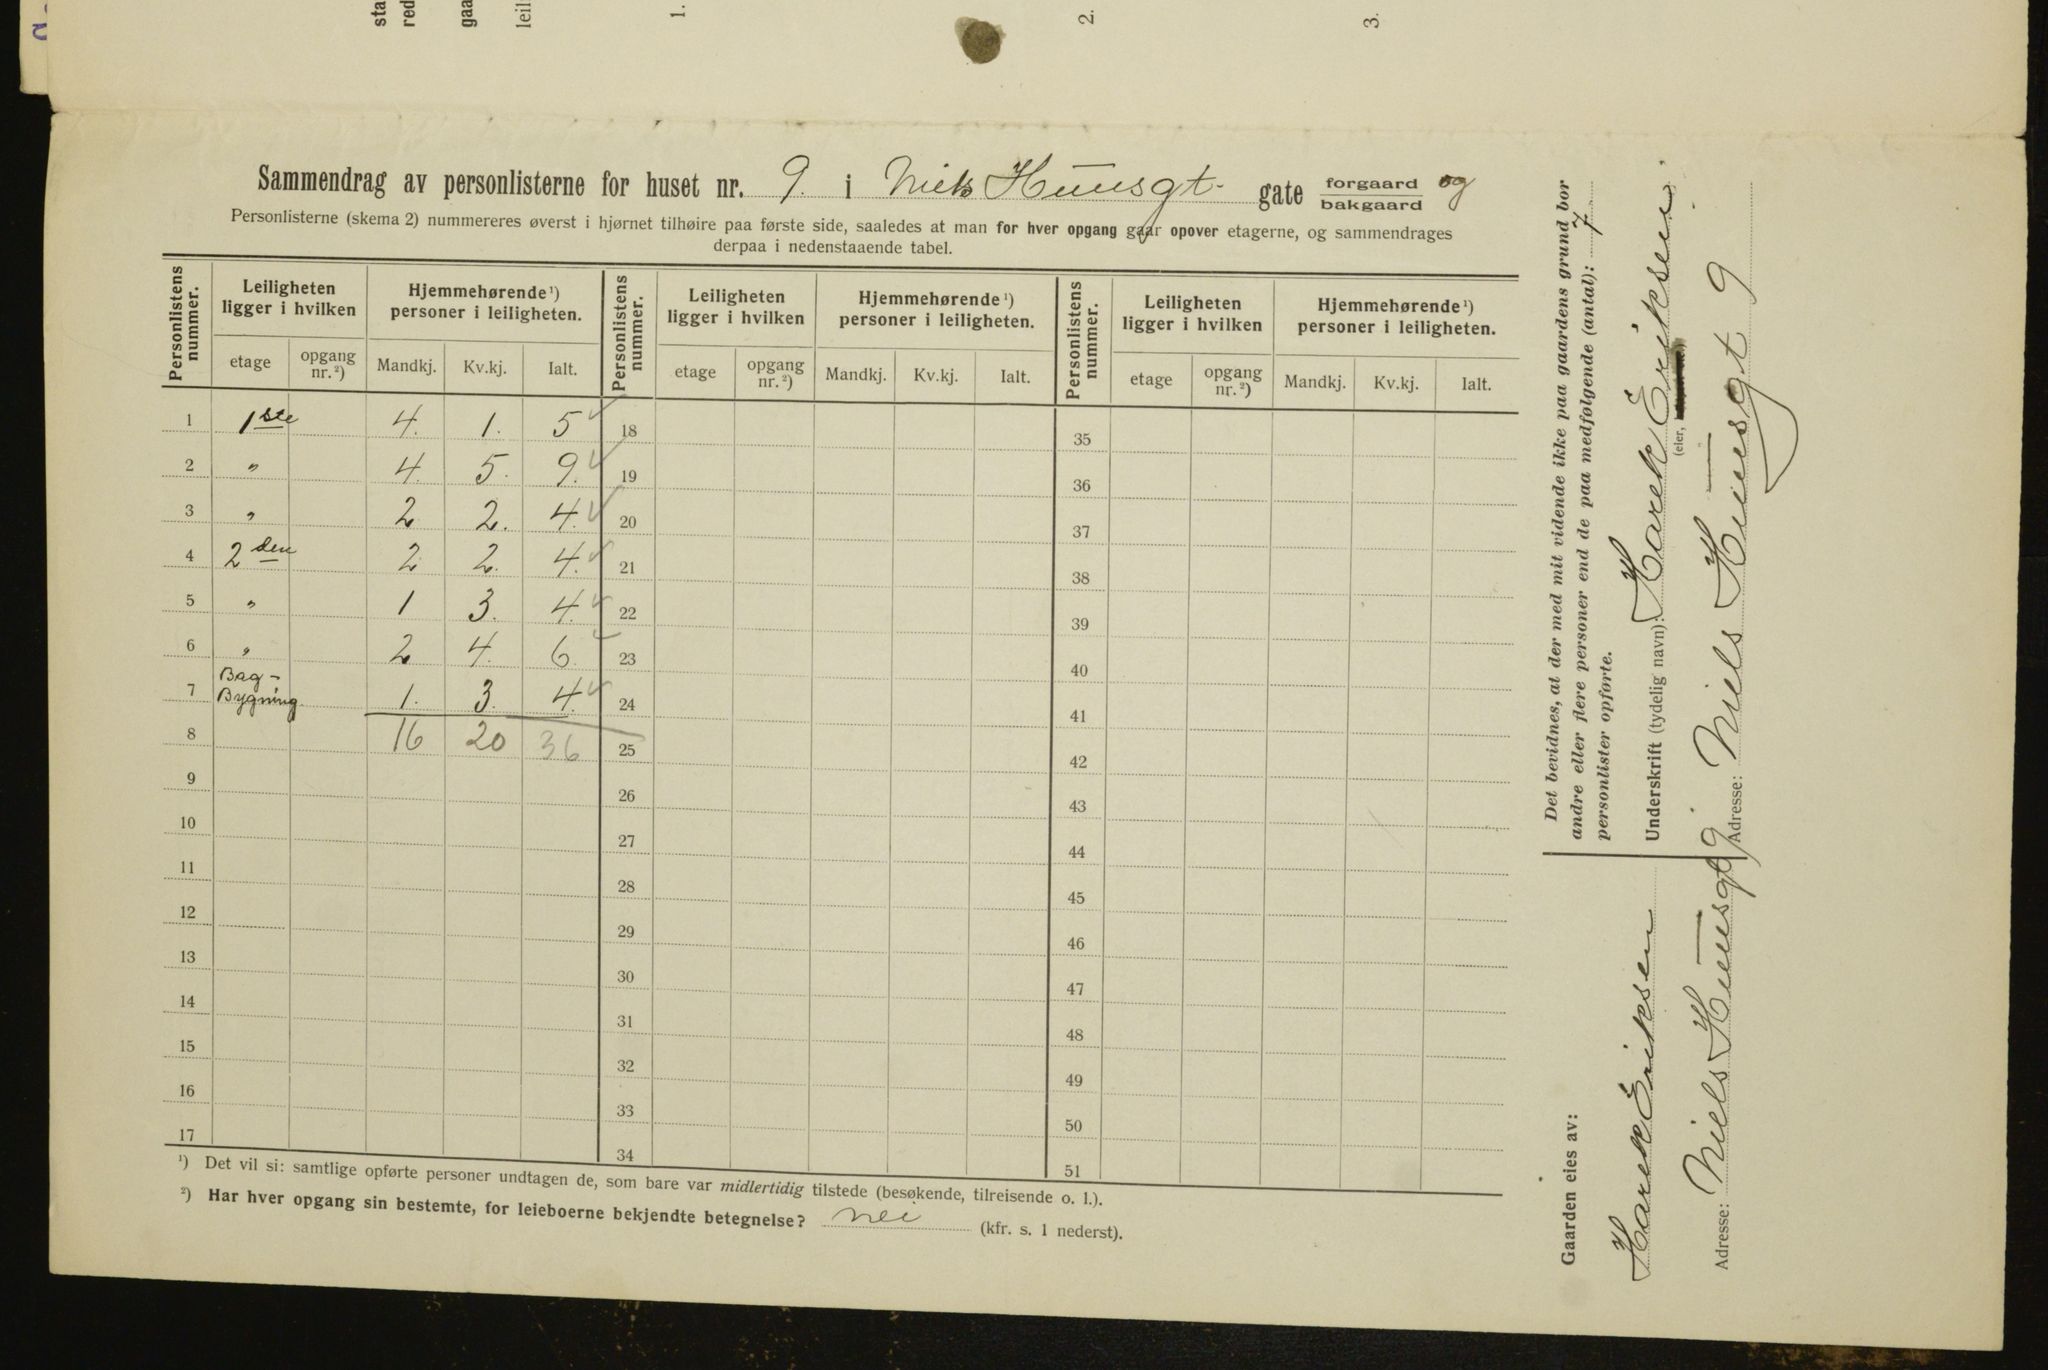 sta
red
gaa
leil
1.
2.
3.
Sammendrag av personlisterne for huset nr. 9. i Niels Huusgt. gate forgaard og bakgaard
Personlisterne (skema 2) nummereres øverst i hjørnet tilhøire paa første side, saaledes at man for hver opgang gaar opover etagerne, og sammendrages
derpaa i nedenstaaende tabel.
Personlistens nummer. Leiligheten ligger i hvilken Hjemmehørende ¹) personer i leiligheten. Personlistens nummer. Leiligheten ligger i hvilken Hjemmehørende ¹) personer i leiligheten. Personlistens nummer. Leiligheten ligger i hvilken Hjemmehørende ¹) personer i leiligheten.
etage opgang nr. ²) Mandkj. Kv.kj. Ialt. etage opgang nr. ²) Mandkj. Kv.kj. Ialt. etage opgang nr. ²) Mandkj. Kv.kj. Ialt.
1 1ste 4. 1. 5 18 35
2 " 4. 5. 9. 19 36
3 " 2 2. 4. 20 37
4 2den 2. 2. 4. 21 38
5 " 1 3. 4. 22 39
6 " 2 4. 6. 23 40
7 Bag-Bygning 1. 3. 4. 24 41
8 16 20 36 25 42
9 26 43
10 27 44
11 28 45
12 29 46
13 30 47
14 31 48
15 32 49
16 33 50
17 34 51
¹) Det vil si: samtlige opførte personer undtagen de, som bare var midlertidig tilstede (besøkende, tilreisende o. l.).
²) Har hver opgang sin bestemte, for leieboerne bekjendte betegnelse? nei (kfr. s. 1 nederst).
Det bevidnes, at der med mit vidende ikke paa gaardens grund bor
andre eller flere personer end de paa medfølgende (antal): 7
personlister opførte.
Underskrift (tydelig navn): Harek Eriksen
(eier,
Adresse: Niels Huusgt 9
Gaarden eies av:
Harek Eriksen
Adresse: Niels Huusgt 9